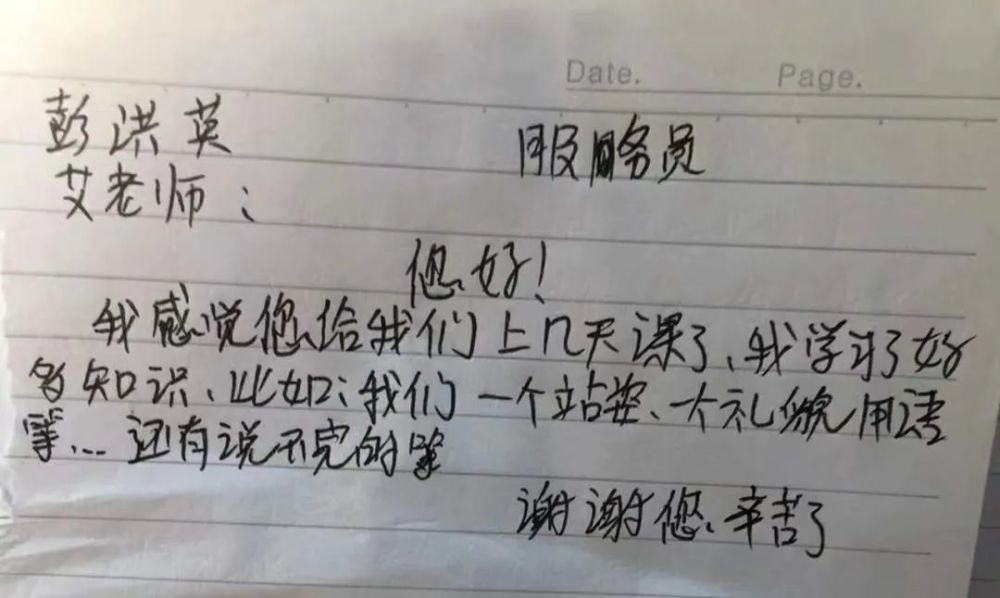 Date. Page.
彭洪英 服务员
艾老师：
您好！
我感觉您给我们上几天课了、我学习了好
多知识、比如：我们一个站姿、个礼貌用语
等... 还有说不完的等
谢谢您、辛苦了